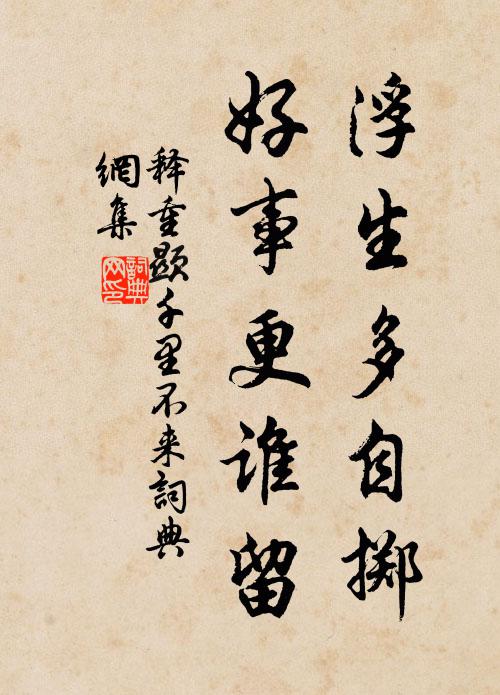 浮生多自掷
好事更谁留
释重顯千里不来詞典
網集
詞典
网印